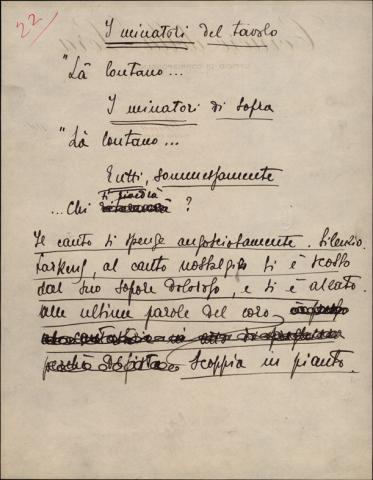 22
I minatori del tavolo
"Là lontano...
I minatori di sopra
"Là lontano...
Tutti, sommessamente
si piacerà
...Chi ?
Il canto si spenge angosciosamente. Silenzio.
Larkens, al canto nostalgico si è scosso
dal suo sopore doloroso, e si è alzato.
alle ultime parole del coro
perchè scoppia in pianto.